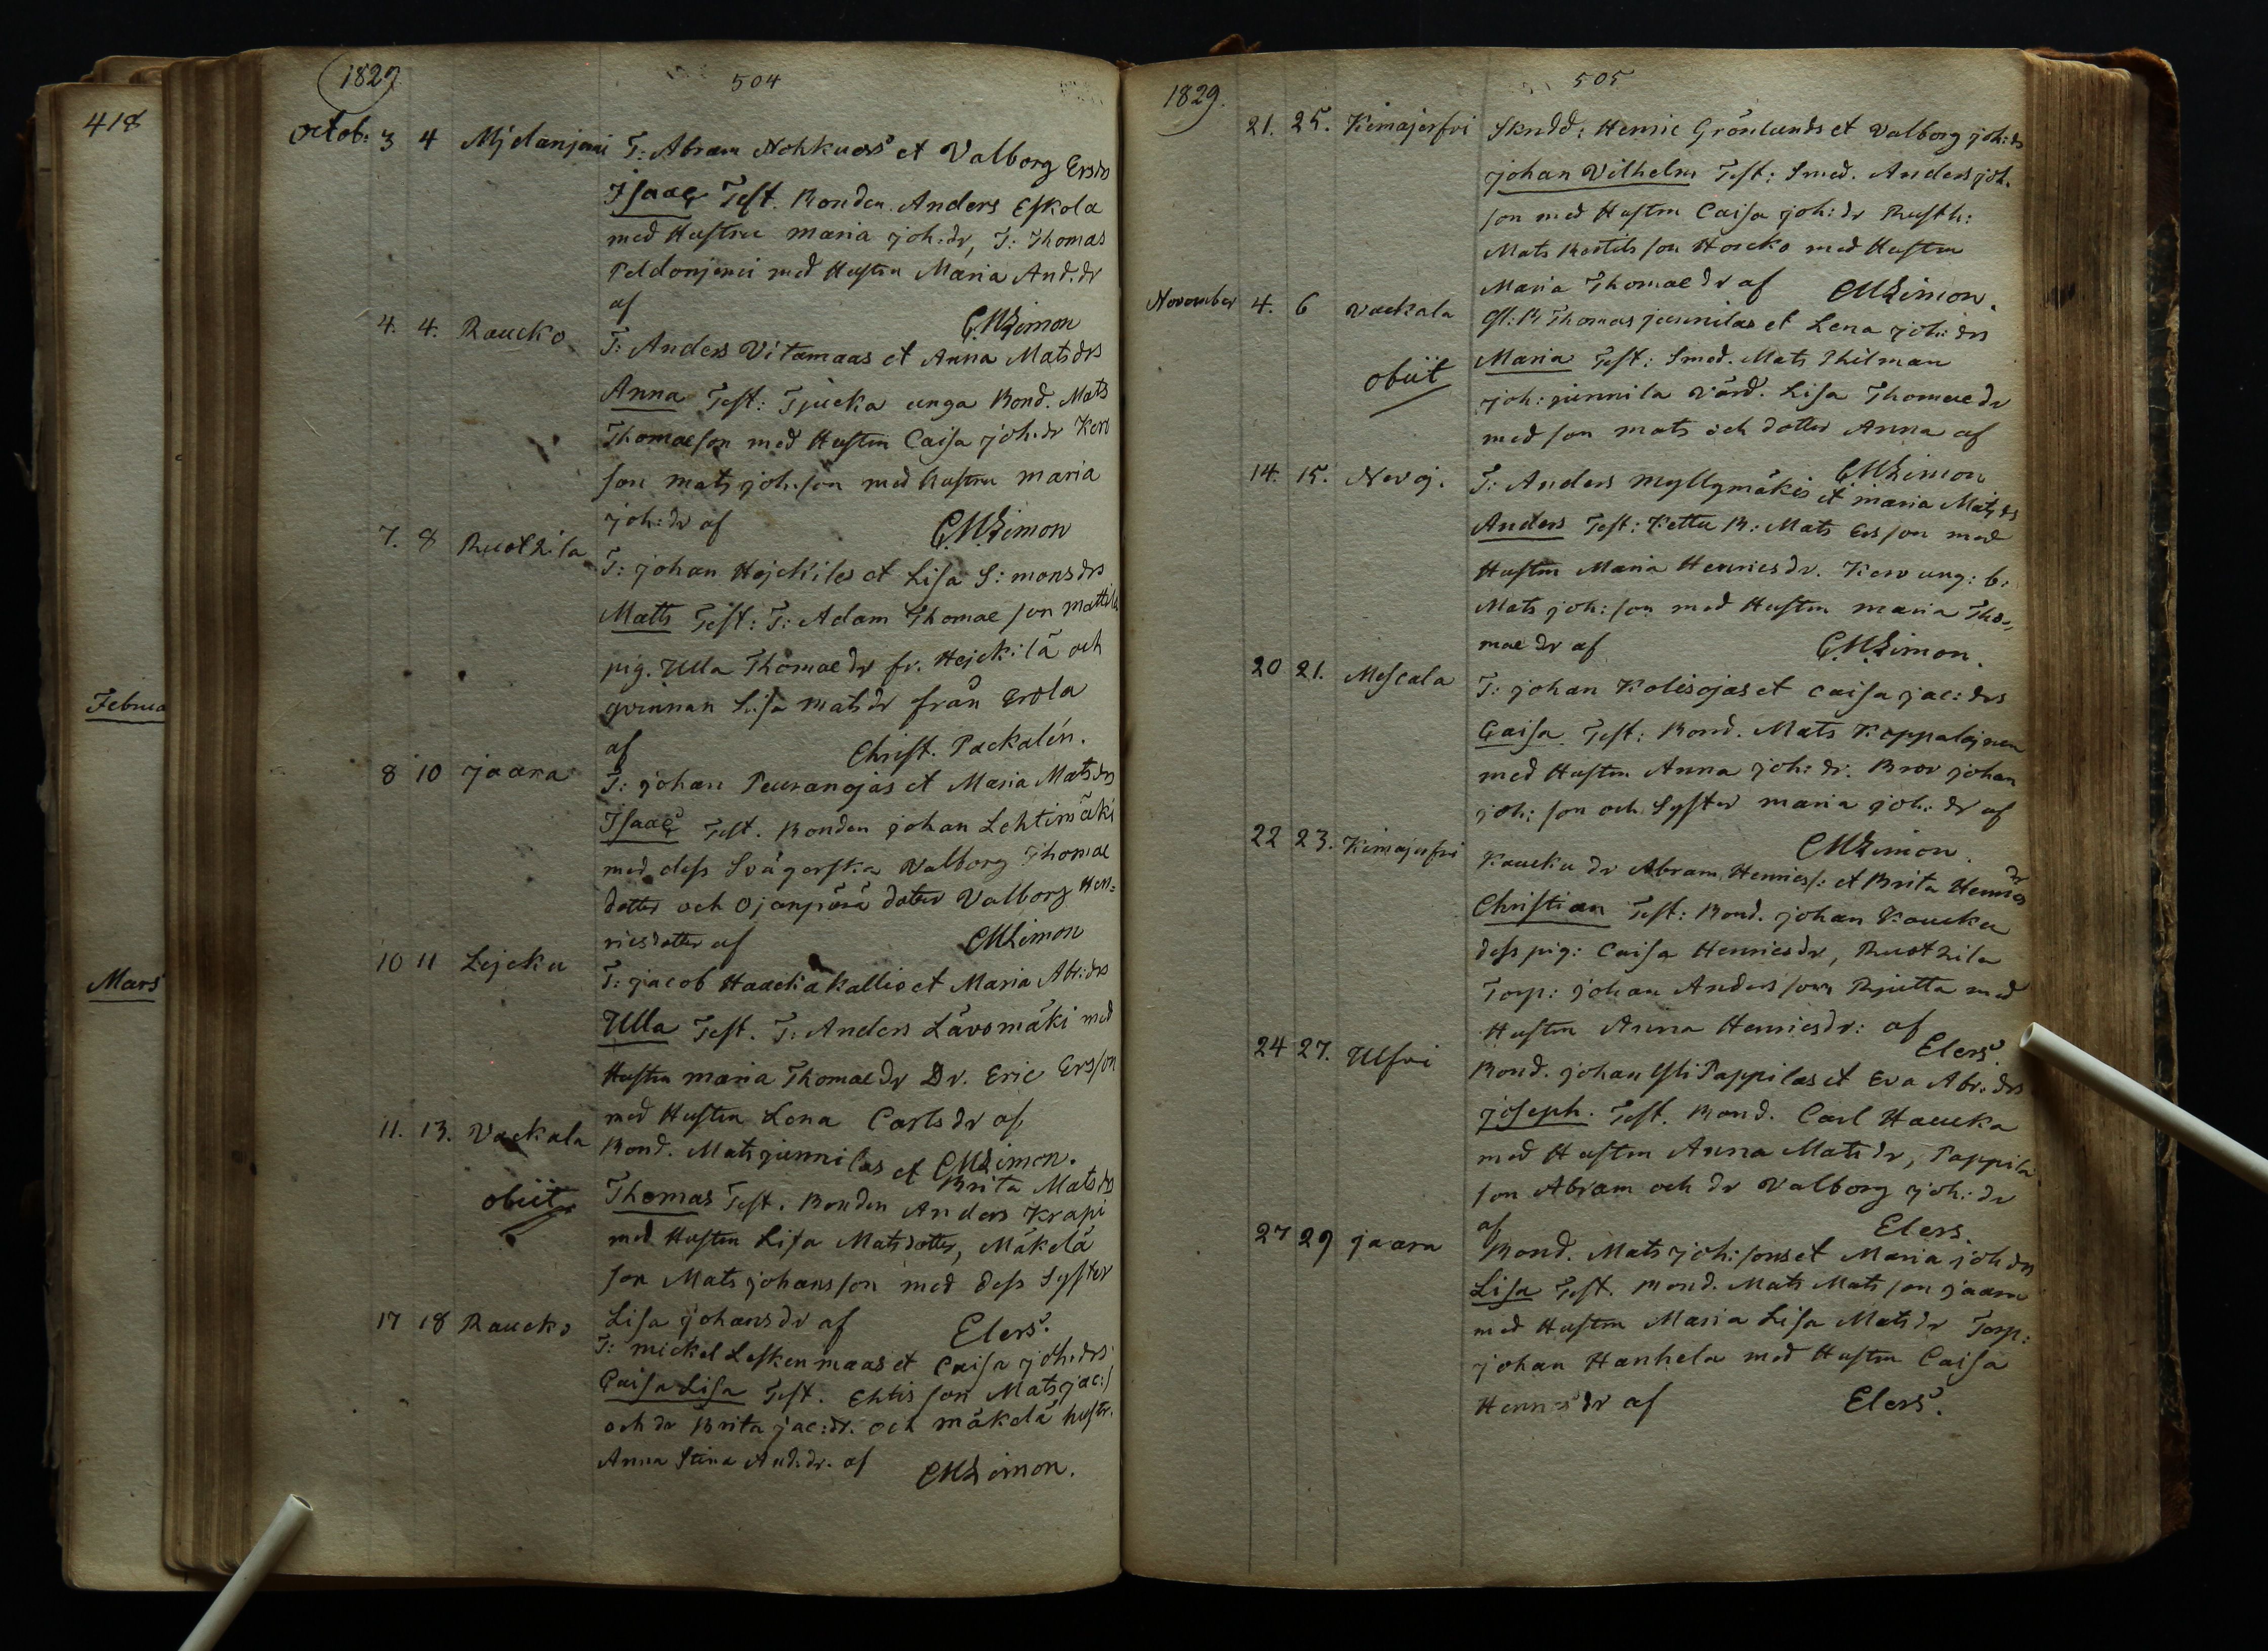 418
Februa
Mars
1829
504
Octob: 3 4 Mjdanjemi T: Abram Nohkuors et Valborg Ersdrs
Isaac Test. Bonden Anders Eskola
med Hustru Maria joh:dr, T: Thomas
Peldonjemi med Hustru Maria And:dr
af CMLimon
4. 4. Raucko T: Anders Vitamaas et Anna Matsdrs
Anna Test: Tjucka unga Bond. Mats
Thomaeson med Hustru Caisa joh:dr Kero
son Mats joh:son med Hustru Maria
joh:dr af CMLimon
7. 8 Ruotzila T: johan Hejckiles et Lisa Simonsdrs
Matts Test: T: Adam Thomae son Mattila
pig. Ulla Thomaedr fr. Hejckilä och
qvinnan Lisa Matsdr från Erola
af Christ. Packalén.
8 10 jaara T: johan Peuranojas et Maria Matsdrs
Isaac Test. Bonden johan Lehtimäki
med dess Svägerska Valborg Thomae
dotter och Ojanperä dotter Valborg Hen=
ricsdotter af CMLimon
10 11 Lejcku T: jacob Haackakallios et Maria Abr:drs
Ulla Test. T: Anders Lävsmäki med
Hustru Maria Thomaedr Dr. Eric Ersson
med Hustru Lena Carlsdr af
CMLimon.
11. 13. Vackala Bond. Mats junnilas et Brita Matsdrs
obiit Thomas Test. Bonden Anders Krapi
med Hustru Lisa Matsdotter, Mäkelä
son Mats johansson med dess Syster
Lisa johansdr af Elers.
17 18 Raucko T: Mickel Leskenmaas et Caisa joh:drs
Caisa Lisa Test. Ehtis son Mats jac:s
och dr Brita jac:dr. och Mäkelä hustr.
Anna Stina And:dr. af CMLimon.
1829.
505
21. 25. Kimajerfvi Skrädd: Henric Grönlunds et Valborg joh:drs
johan Vilhelm Test: Smed. Anders joh.
son med Hustru Caisa joh:dr Rusth:
Mats Bertilsson Horcko med Hustru
Maria Thomaedr af CMLimon.
November 4. 6 Vackala Gl: B Thomas junnilas et Lena joh:drs
obiit Maria Test: Smed. Mats Philman
joh: junnila Värd. Lisa Thomaedr
med son Mats och dotter Anna af
CMLimon
14. 15. Norgj. T: Anders Myllymäkis et Maria Matsdrs
Anders Test: Kettu B: Mats Ersson med
Hustru Maria Henricsdr. Kero ung: b:
Mats joh:son med Hustru Maria Tho-
maedr af CMLimon.
20 21. Mescala T: johan Kolisojas et Caisa jac:drs
Caisa Test: Bond. Mats Koppalojnen
med Hustru Anna joh:dr. Bror johan
joh:son och Syster Maria joh:dr af
CMLimon.
22 23. Kimajerfvi Kaucku dr Abram Henrics: et Brita Henricsdr
Christian Test: Bond. johan Kaucku
dess pig: Caisa Henricsdr, Ruotzila
Torp: johan Andersson Rjutta med
Hustru Anna Henricsdr: af
Elers.
24 27. Ulfvi Bond. johan Yli Pappilas et Eva Abr:drs
joseph. Test. Bond. Carl Haucka
med Hustru Anna Matsdr, Pappila
son Abram och dr Valborg joh:dr
af Elers.
27 29 jaara Bond. Mats joh:sons et Maria joh:drs
Lisa Test. Bond. Mats Matsson jaara
med Hustru Maria Lisa Matsdr Torp:
johan Hanhela med Hustru Caisa
Henricsdr af Elers.